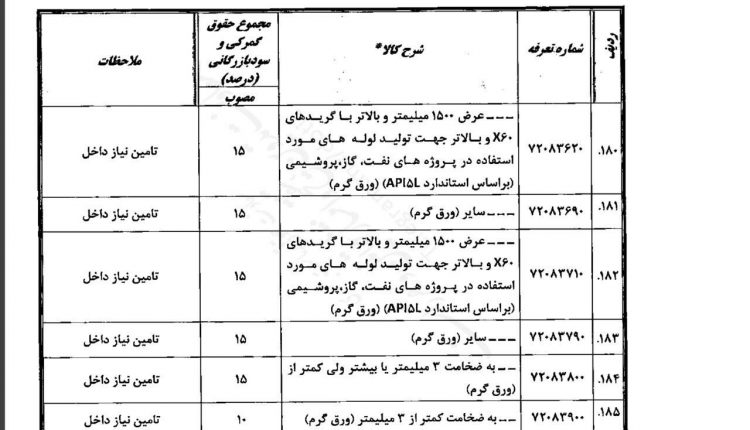 ردیف
شماره تعرفه
شرح کالا*
مجموع حقوق
گمرکی و
سودبازرگانی
(درصد)
مصوب
ملاحظات
۱۸۰.
۷۲۰۸۳۶۲۰
--- عرض ۱۵۰۰ میلیمتر و بالاتر با گریدهای
X۶۰ و بالاتر جهت تولید لوله های مورد
استفاده در پروژه های نفت، گاز،پروشیمی
(براساس استاندارد API۵L) (ورق گرم)
۱۵
تامین نیاز داخل
۱۸۱.
۷۲۰۸۳۶۹۰
--- سایر (ورق گرم)
۱۵
تامین نیاز داخل
۱۸۲.
۷۲۰۸۳۷۱۰
--- عرض ۱۵۰۰ میلیمتر و بالاتر با گریدهای
X۶۰ و بالاتر جهت تولید لوله های مورد
استفاده در پروژه های نفت، گاز،پروشیمی
(براساس استاندارد API۵L) (ورق گرم)
۱۵
تامین نیاز داخل
۱۸۳.
۷۲۰۸۳۷۹۰
--- سایر (ورق گرم)
۱۵
تامین نیاز داخل
۱۸۴.
۷۲۰۸۳۸۰۰
-- به ضخامت ۳ میلیمتر یا بیشتر ولی کمتر از
(ورق گرم)
۱۵
تامین نیاز داخل
۱۸۵.
۷۲۰۸۳۹۰۰
-- به ضخامت کمتر از ۳ میلیمتر (ورق گرم)
۱۰
تامین نیاز داخل